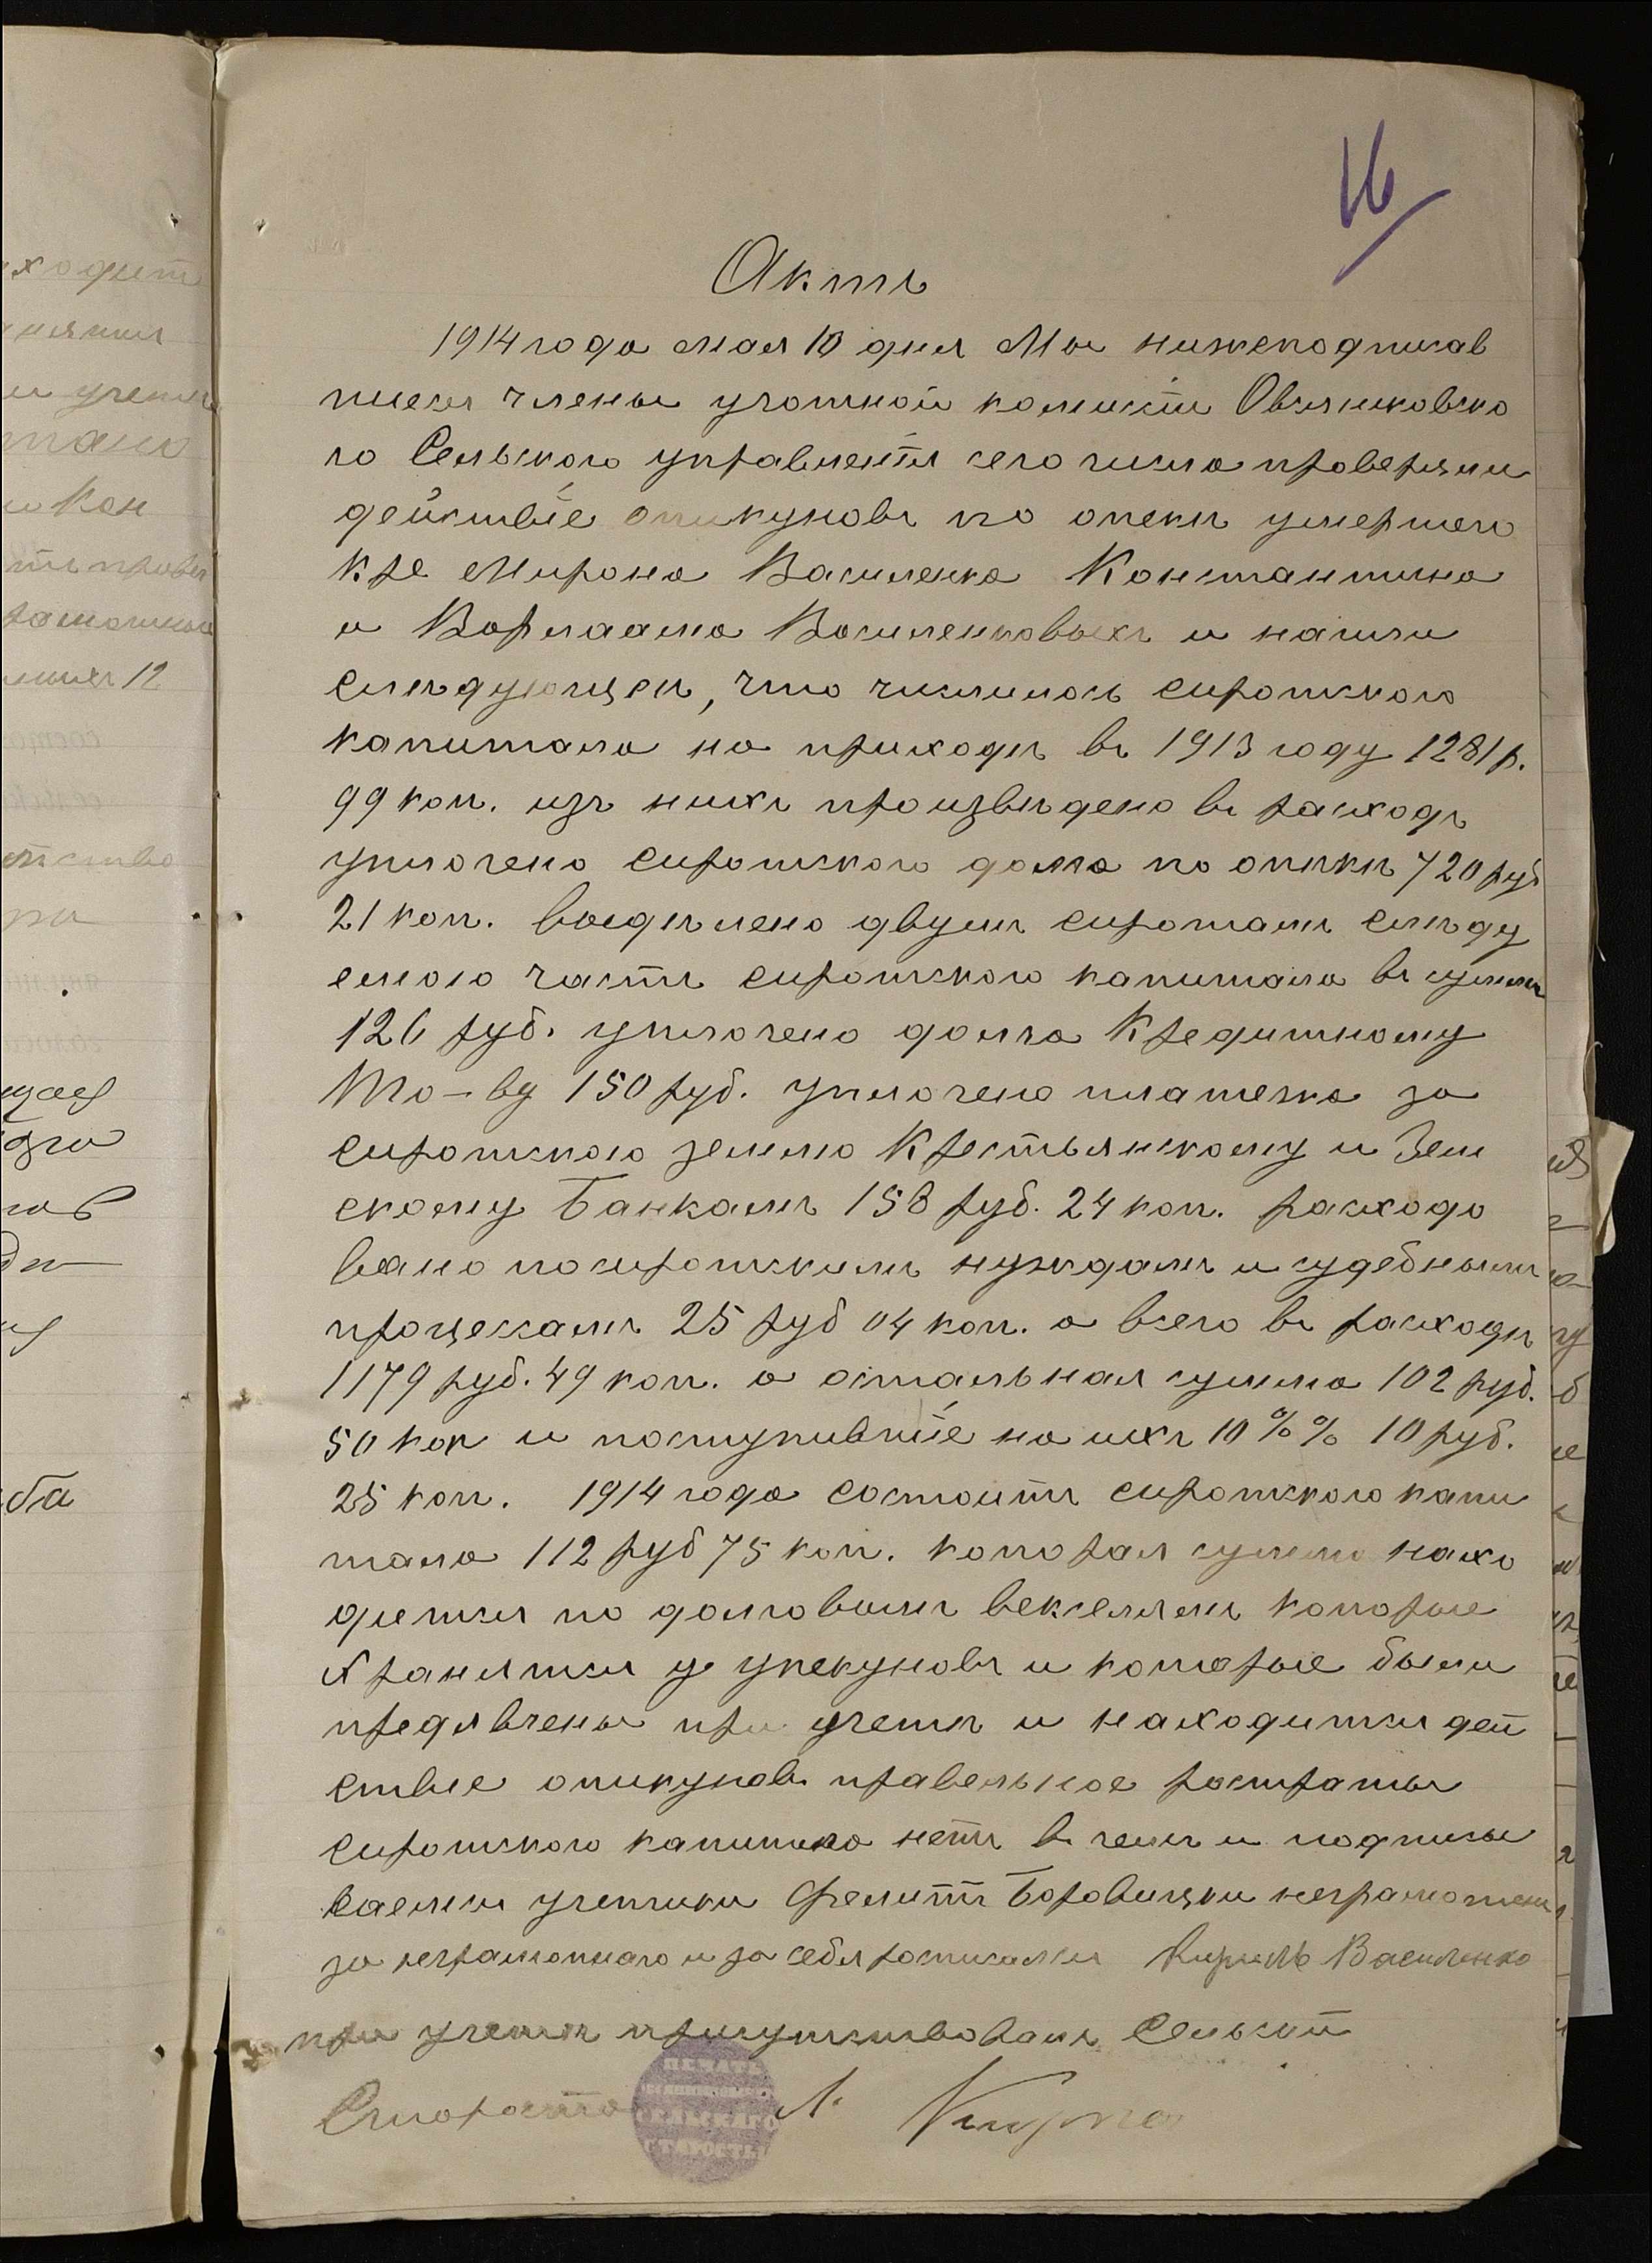 16
Актъ
1914 года мая 10 дня Мы нижеподписав
шиеся члены учотной комисіи Овсяниковско
го Сельского управленія сего числа проверяли
дейиствіе опикуновъ по опеки умершего
Кре Мирона Василенка Константина
и Варлаама Василенковыхъ и нашли
слѣдующеи, что числилось сиротского
капитала на приходѣ въ 1913 году 1281 р.
99 коп. изъ нихъ произвѣдено въ расходъ
уплочено сиротского долга по опѣкѣ 720 руб
21 коп. выдѣлено двумъ сиротамъ слѣду
емого часть сиротского капитала въ суммѣ
126 руб. уплочено долга Кредитному
То-ву 150 руб. уплочено платежа за
сиротского землю Крестьянскому и Зем
скому Банкамъ 158 руб. 24 коп. расходо
вано по сиротскимъ нуждамъ и судебнымъ
процессамъ 25 руб 04 коп. а всего въ расходѣ
1179 руб. 49 коп. а остальная сумма 102 руб.
50 коп и поступившіе на ихъ 10%% 10 руб.
25 коп. 1914 года состоитъ сиротского капи
тала 112 руб 75 коп. которая сумма нахо
дится по долговымъ векселямъ которые
хранятся у упекуновъ и которые были
предявлены при учетѣ и находится деи
ствие опикуновъ правельное растраты
сиротского капитала нетъ въ чемъ и подписы
ваемся учетчики Филипъ Боровицки неграмотены
за неграмотного и за себя росписался Кирилъ Василенко
при учетѣ присутствовалъ Сельскій
Староста Л.
ПЕЧАТЬ
СЕЛЬСКАГО
СТАРОСТЫ